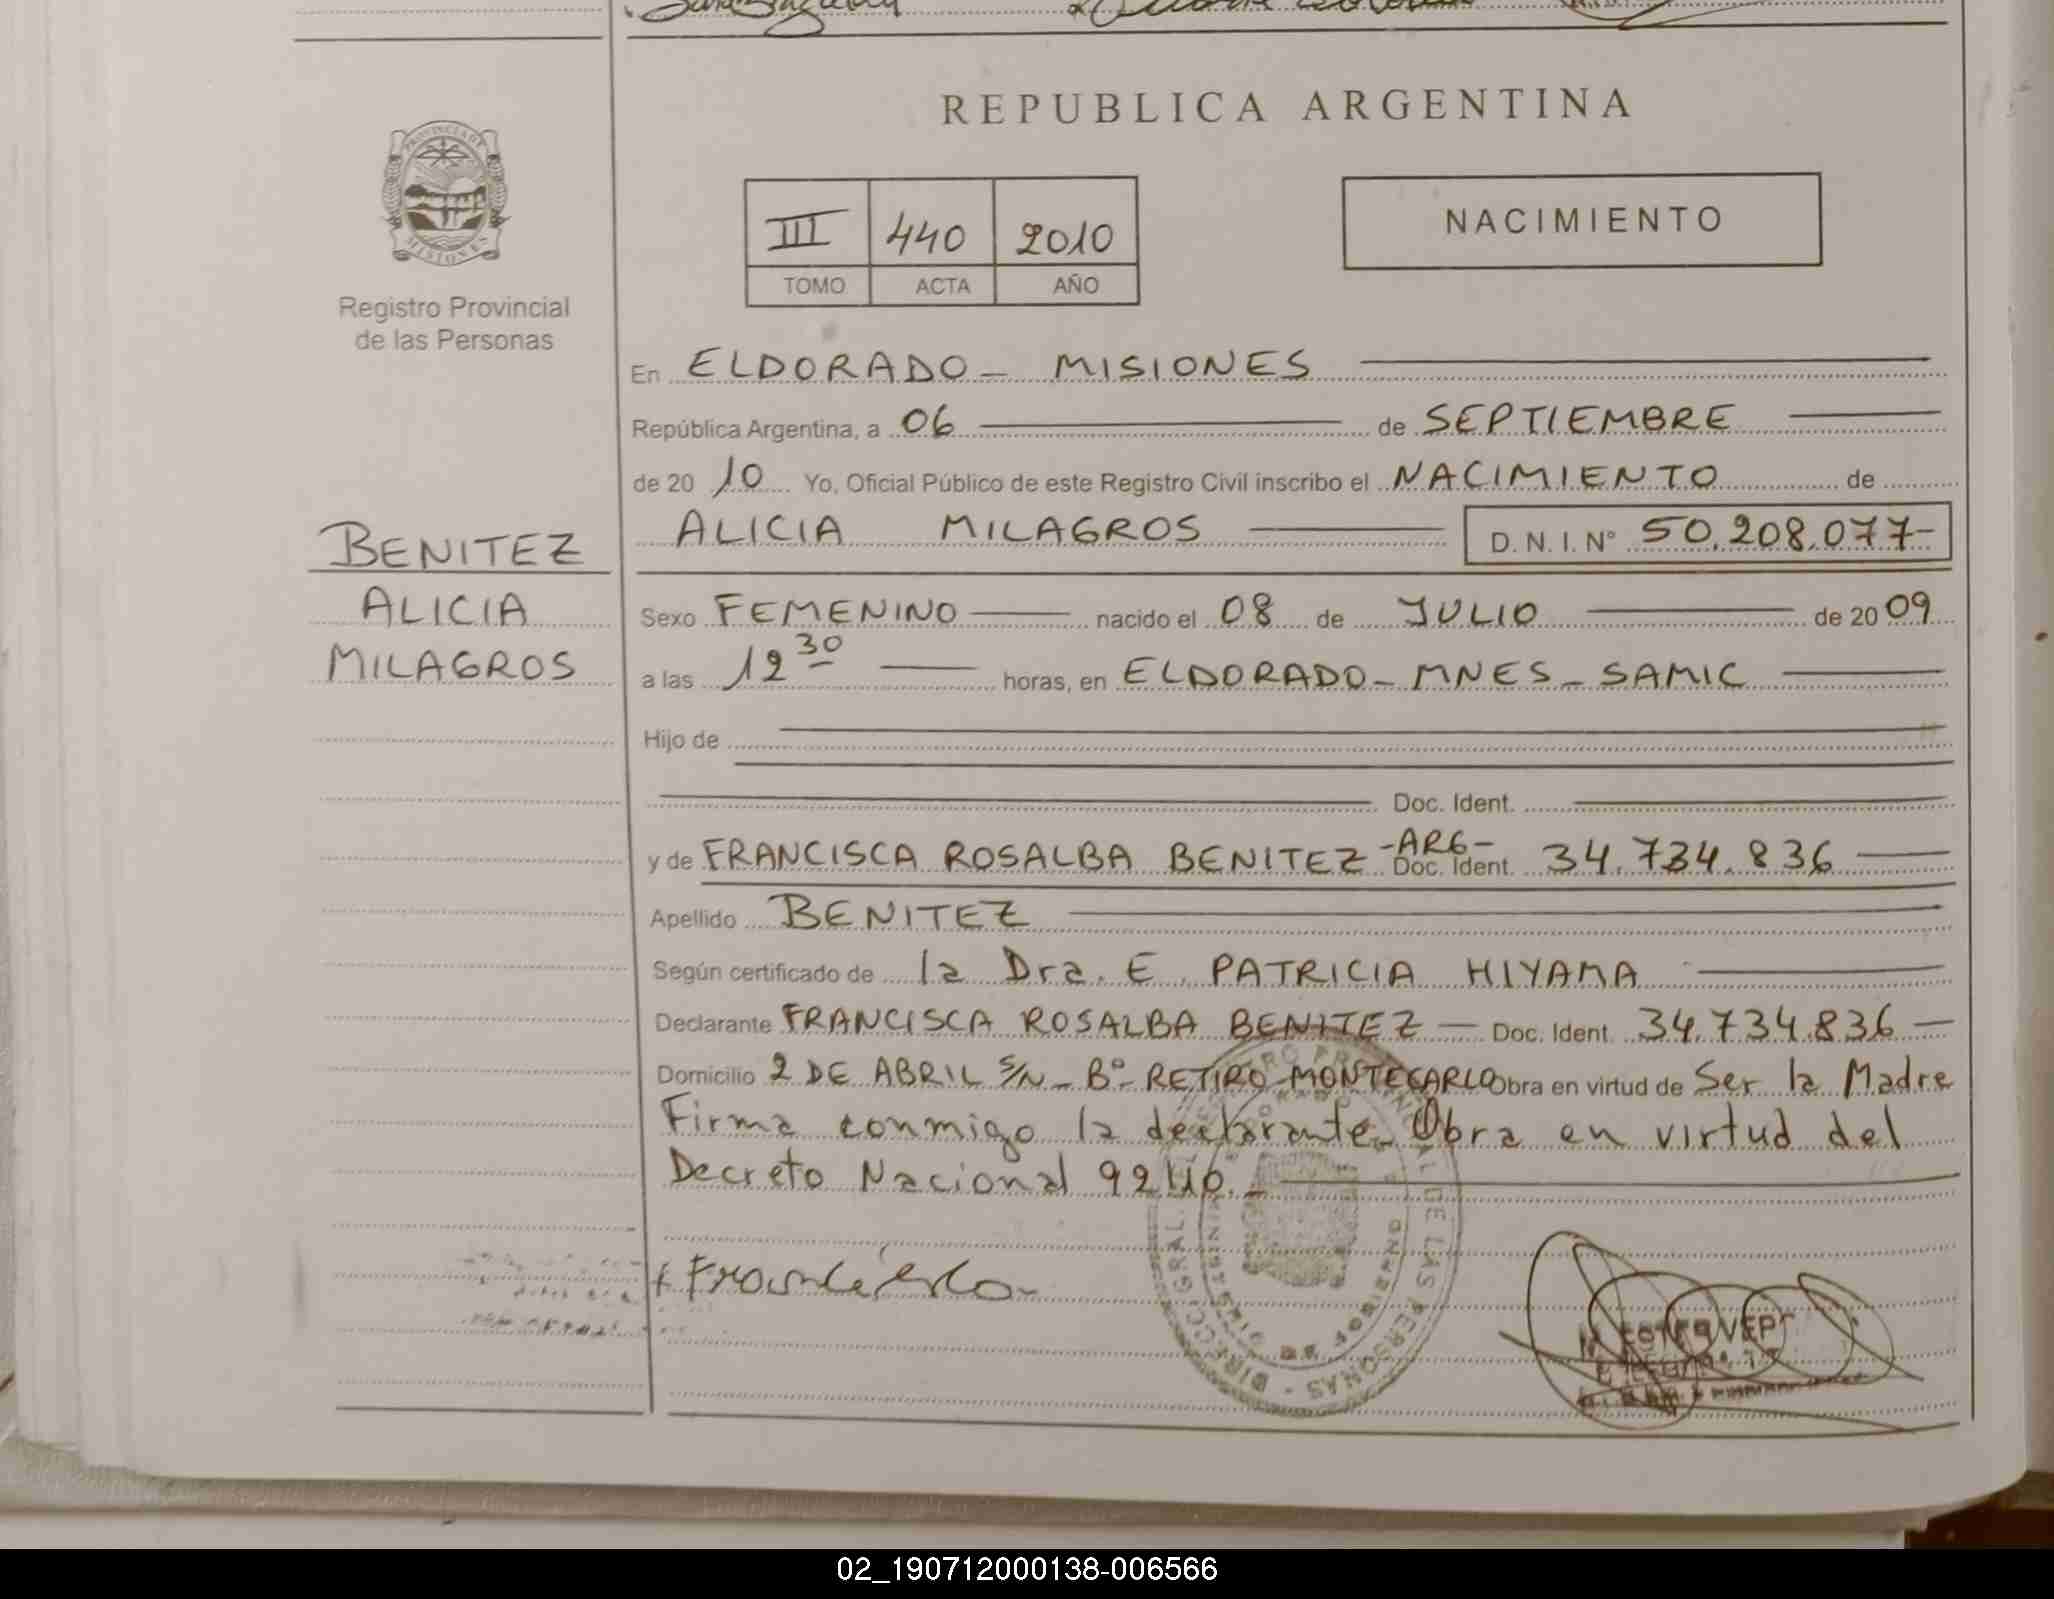 REPUBLICA ARGENTINA
PROVINCIA DE MISIONES
Registro Provincial
de las Personas
III 440 2010
TOMO ACTA AÑO
NACIMIENTO
En ELDORADO - MISIONES
República Argentina, a 06 de SEPTIEMBRE
de 20 10 Yo, Oficial Público de este Registro Civil inscribo el NACIMIENTO de
ALICIA MILAGROS D.N.I. N° 50.208.077-
BENITEZ
ALICIA
MILAGROS
Sexo FEMENINO nacido el 08 de JULIO de 20 09
a las 12 30 horas, en ELDORADO - MNES - SAMIC
Hijo de
Doc. Ident.
y de FRANCISCA ROSALBA BENITEZ -ARG- Doc. Ident. 34.734.836
Apellido BENITEZ
Según certificado de la Dra. E. PATRICIA HIYAMA
Declarante FRANCISCA ROSALBA BENITEZ - Doc. Ident. 34.734.836 -
Domicilio 2 DE ABRIL S/N - B° RETIRO - MONTECARLO Obra en virtud de Ser la Madre
Firma conmigo la declarante. Obra en virtud del
Decreto Nacional 92/10. -
02_190712000138-006566